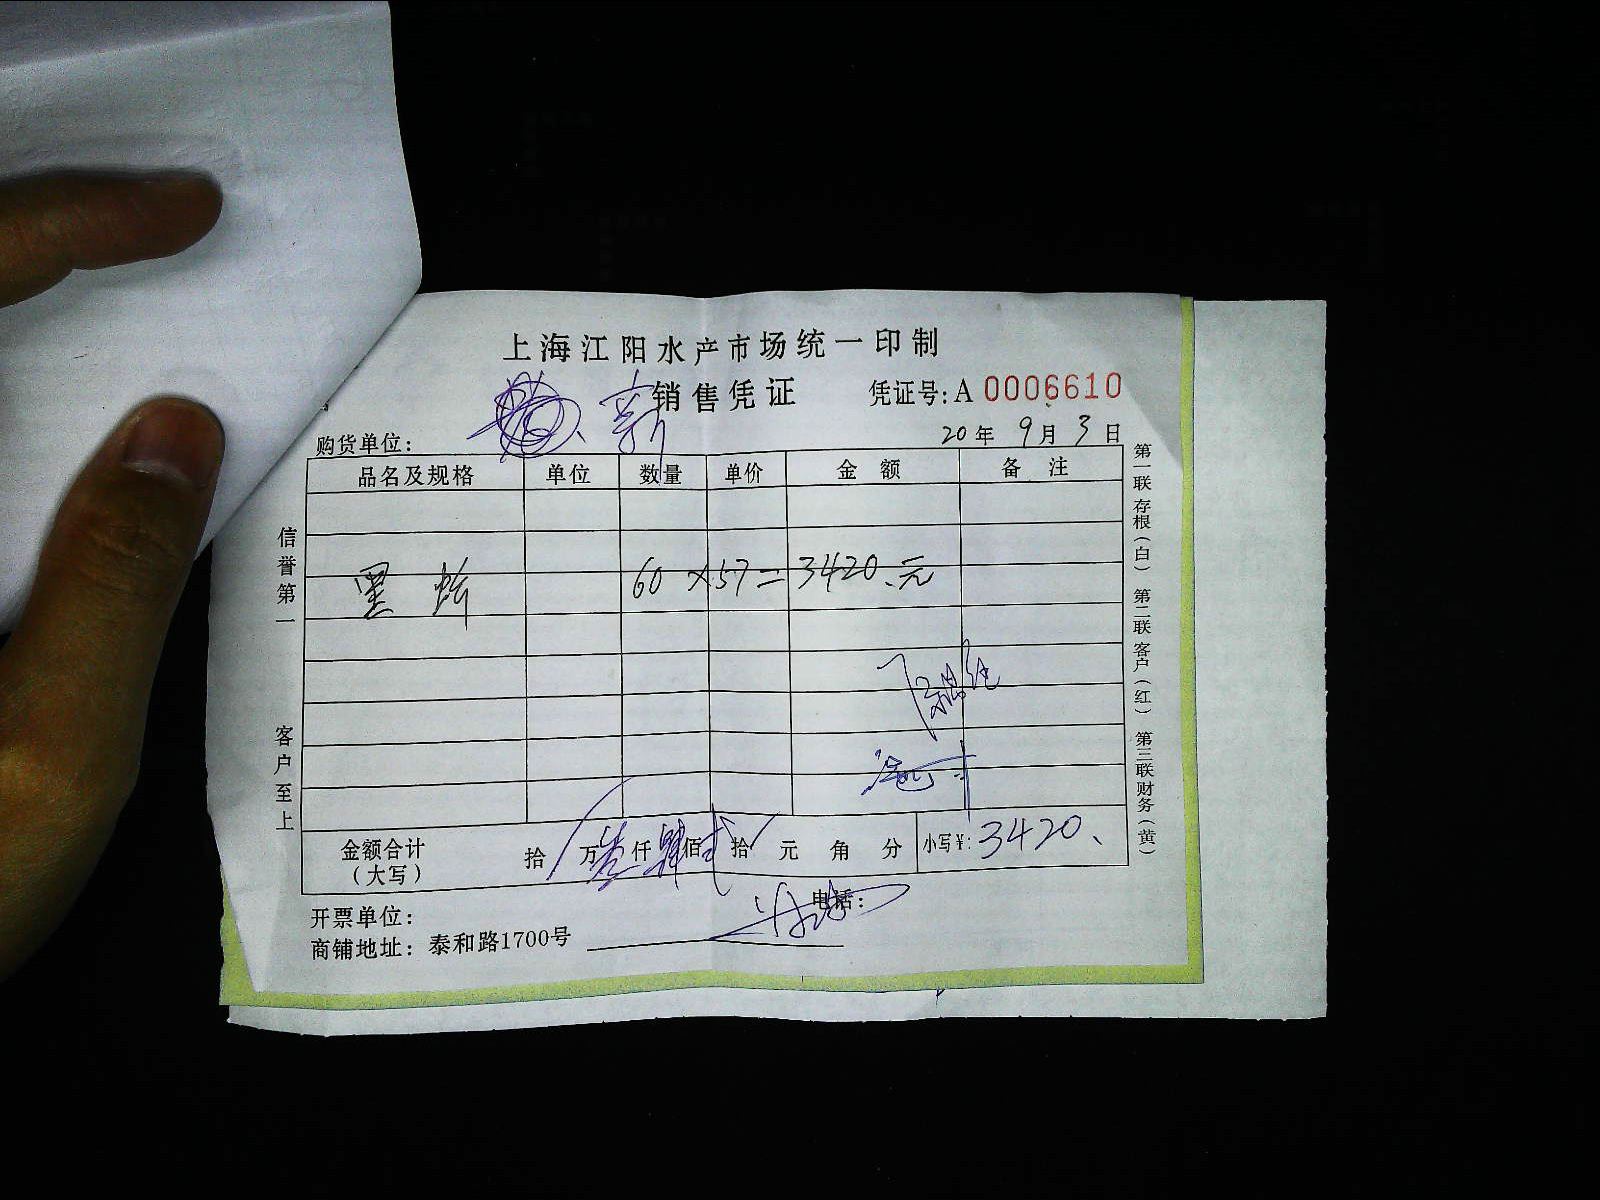 上海江阳水产市场统一印制
销售凭证
凭证号:A 0006610
购货单位:
20年 9月 3日
品名及规格 单位 数量 单价 金额 备注
黑 60 ×57=3420.元
金额合计(大写) 拾 万 仟 肆 佰 弍 拾 元 角 分 小写¥:3420.
开票单位: 电话:
商铺地址:泰和路1700号
信誉第一 客户至上
第一联存根(白) 第二联客户(红) 第三联财务(黄)